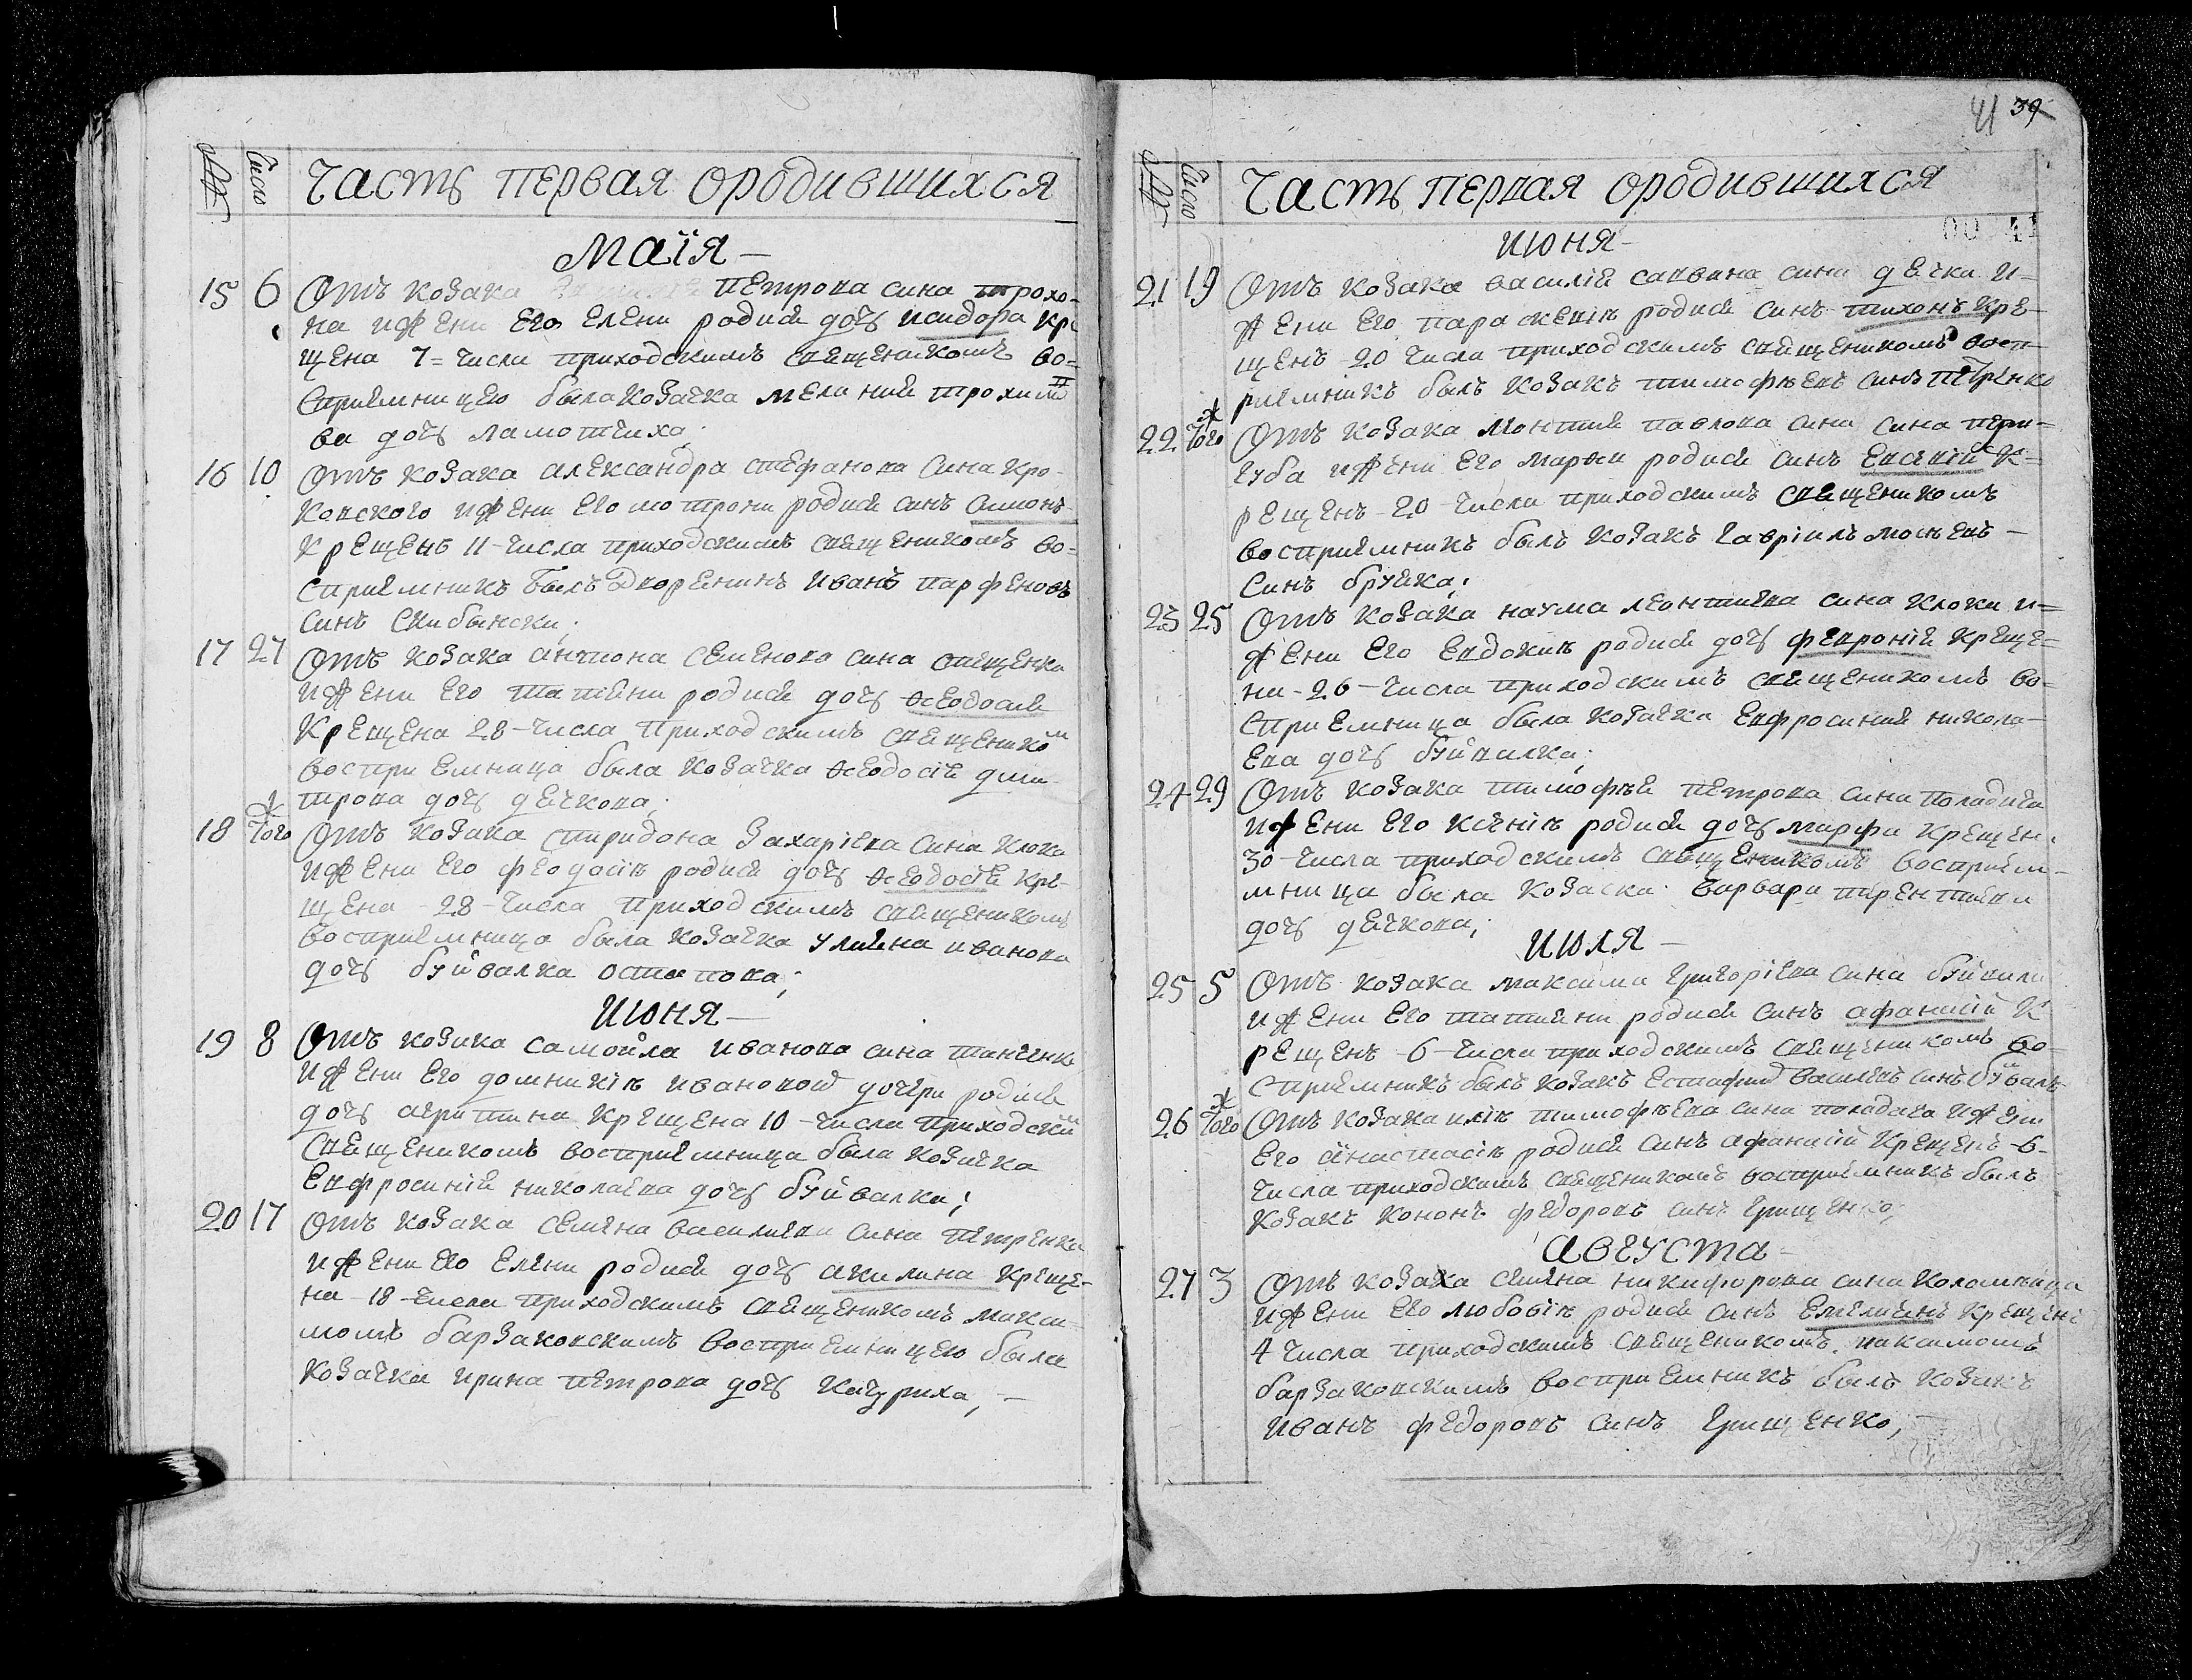 № Число Часть первая ородившихся
Маїя –
15 6 Отъ козака Петрова сина Трохо-
на ижени его Елени родися дочъ Исидора кре
щена 7= числа приходскимъ свѣщеникомъ во=
сприемницею была козачка Меланиѣ Трохимо
ва дочъ Ламотчиха;
16 10 Отъ козака Александра Стефанова сина Кро-
ковского ижени его Мотрони родися синъ Симонъ
крещенъ 11-числа приходскимъ свѣщеникомъ во=
сприемникъ былъ дворенинъ Иванъ Парфеновъ
синъ Скибински;
17 27 Отъ козака Антона Семенова сина
ижени его Татіѣни родися дочъ Ѳеодосиѣ
крещена 28-числа приходскимъ свѣщеникомъ
восприемница была козачка Ѳеодосіѣ Дми-
трова дочъ Дѣчкова;
18 Того ж Отъ козака Спиридона Захаріева сина Клока
ижени его Феодосіѣ родися дочъ Ѳеодосіѣ кре-
щена -28-числа приходскимъ свѣщеникомъ
восприемница была козачка Улиѣна Иванова
дочъ Буйвалка Остапова;
Июня –
19 8 Отъ козака Самойла Иванова сина Танченка
ижени его Домникіѣ Ивановой дочери родися
дочъ Агрипина крещена 10-числа приходским
свѣщеникомъ восприемница была козачка
Евфросиніѣ Николаева дочъ Буйвалка;
20 17 Отъ козака Семена Василиева сина Петренка
ижени его Елени родися дочъ Акилина креще-
на -18-числа приходскимъ свѣщеникомъ Макси-
момъ Барзаковскимъ восприемницею была
козачка Ирина Петрова дочъ Качуриха, –
41 39
№ Число Часть первая ородившихся
00 41
Июня –
21 19 Отъ козака Василіѣ Саввина сина Дѣчка и=
жени его Параскевіѣ родися синъ Тихонъ кре-
щенъ -20 числа приходскимъ свѣщеникомъ восп-
риемникъ былъ козакъ Тимофѣевъ синъ Петренко
22 Того ж Отъ козака Леонтиѣ Павлова сина сина Пери-
губа ижени его Марѳи родися синъ Евсевій к=
рещенъ -20-числа приходскимъ свѣщеникомъ
восприемникъ былъ козакъ Гавріилъ Мосѣевъ –
синъ Бруѣка;
23 25 Отъ козака Наума Леонтиева сина Клоки и=
жени его Евдокиѣ родися дочъ Февроніѣ креще=
на -26-числа приходскимъ свѣщеникомъ во-
сприемница была козачка Евфросиниѣ Никола-
ева дочъ Буйвалка;
24 29 Отъ козака Тимофѣѣ Петрова сина Поладича
ижени его Ксеніѣ родися дочъ Марфа крещен.
30-числа приходскимъ свѣщеникомъ восприем-
мница была козачка Варвара Терентиева
дочъ Дѣчкова;
Июля –
25 5 Отъ козака Максима Григоріева сина Буйвила
ижени его Татиѣни родися синъ Афанасій к
рещенъ -6-числа приходскимъ свѣщеникомъ во=
сприемникъ былъ козакъ Естафий Василевъ синъ Буйвалъ
26 Того ж Отъ козака Иліѣ Тимофѣева сина Поладича ижени
его Анастасіѣ родися синъ Афанасій крещенъ -6-
числа приходскимъ свѣщеникомъ восприемникъ былъ
козакъ Кононъ Федоровъ синъ Грищенко;
Августа –
27 3 Отъ козака Семена Никифорова сина Коломийца
ижени его Любовіѣ родися синъ Емелиѣнъ крещенъ
4 числа приходскимъ свѣщеникомъ Максимомъ
Барзаковскимъ восприемникъ былъ козакъ
Иванъ Федоровъ синъ Грищенко, –